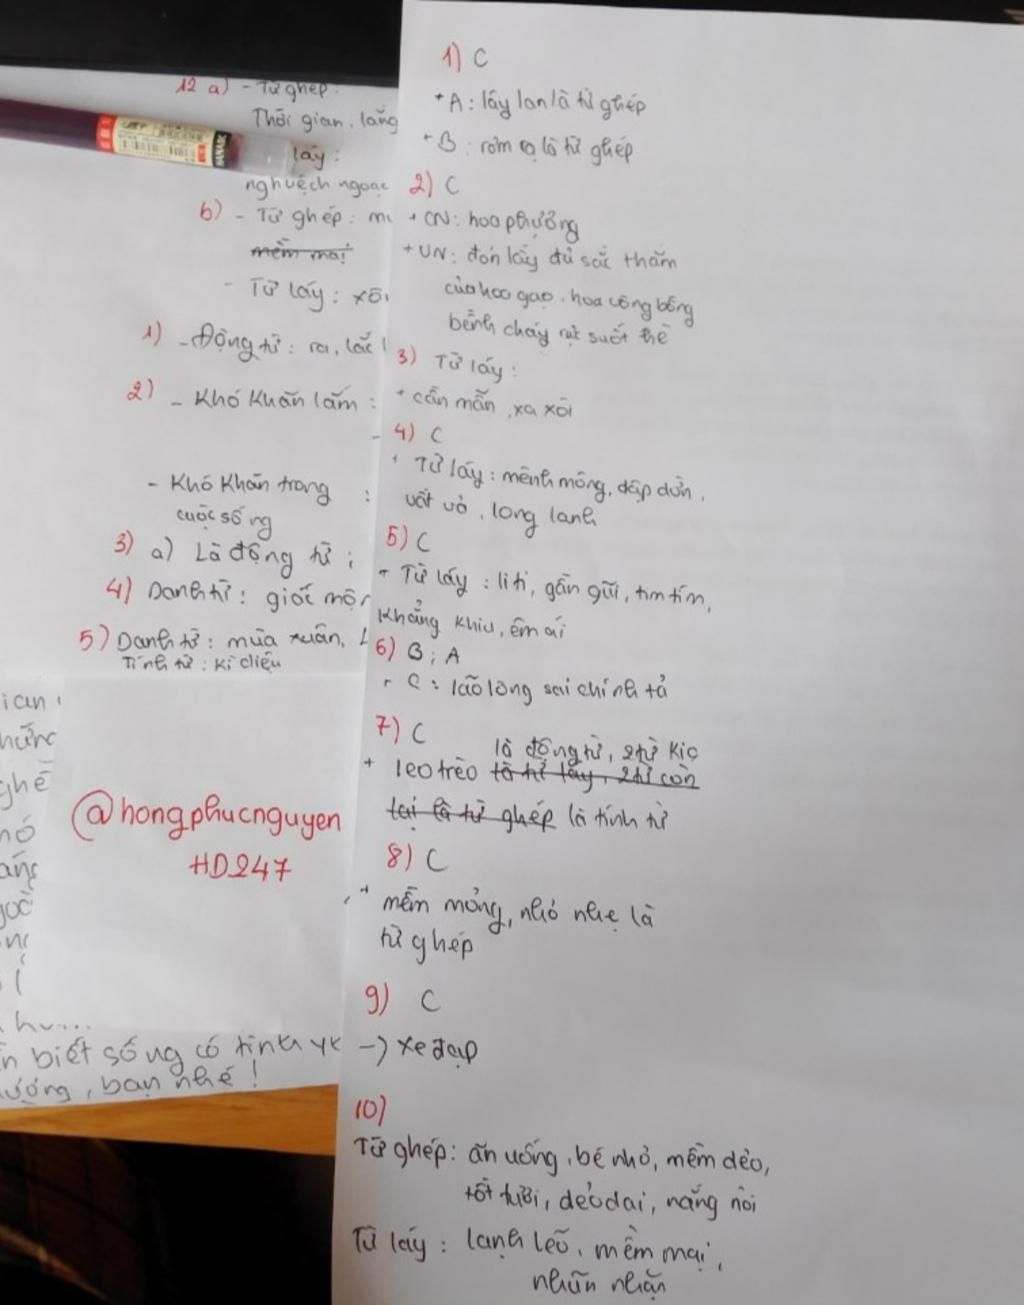 12 a) - Từ ghép:
Thời gian, lẳng
láy:
nghuệch ngoạc
b) - Từ ghép:
mềm mại
- Từ láy:
1) - Động từ: ra, lắc
2) - Khó khăn lắm:
- Khó khăn trong :
cuộc sống
3) a) Là động từ;
4) Danh từ: giấc
5) Danh từ: mùa xuân,
Tính từ: Kì diệu
ghế
@hongphucnguyen
HD247
biết sống có tình
bạn nhé!
1) C
+ A: lây lan là từ ghép
+ B: rơm rạ là từ ghép
2) C
+ CN: hoa phượng
+ VN: đón lấy đủ sắc thắm
của hoa gạo, hoa vông bồng
bềnh cháy rực suốt hè
3) Từ láy:
+ cần mẫn, xa xôi
4) C
+ Từ láy: mênh mông, dập dờn,
vất vả, long lanh
5) C
+ Từ láy: li ti, gần gũi, tim tím,
khẳng khiu, êm ái
6) B; A
+ C: lão lòng sai chính tả
7) C
là động từ, 2 từ kia
+ leo trèo là từ láy, 2 từ còn
lại là từ ghép là tính từ
8) C
+ mềm mỏng, nhỏ nhẹ là
từ ghép
9) C
-> xe đạp
10)
Từ ghép: ăn uống, bé nhỏ, mềm dẻo,
tốt tươi, dẻo dai, nắng nôi
Từ láy: lạnh lẽo, mềm mại,
nhũn nhặn